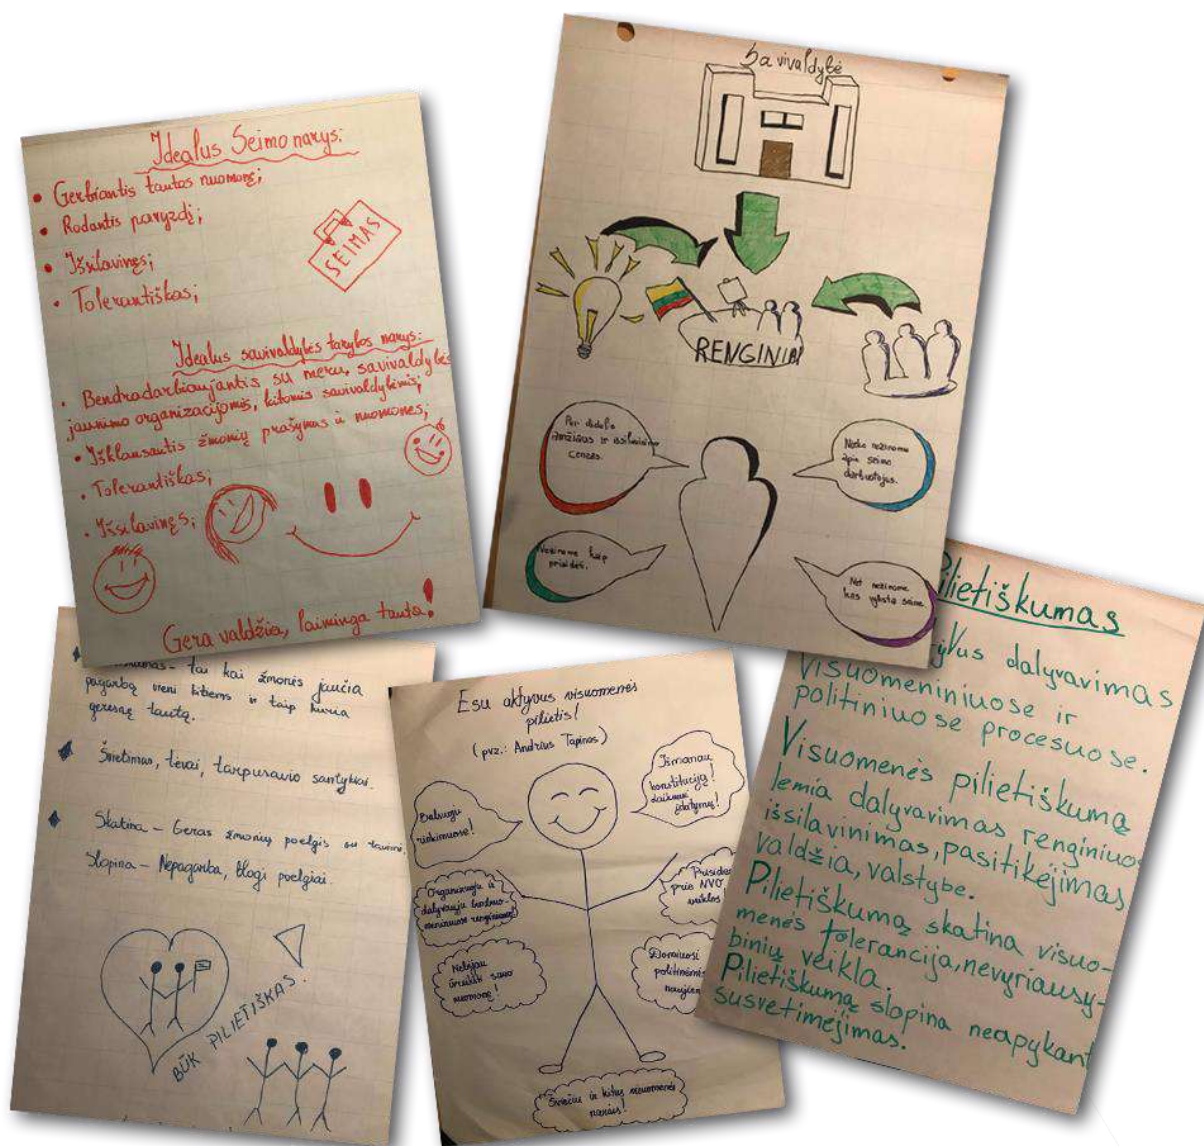 Idealus Seimo narys:
• Gerbiantis tautos nuomonę;
• Rodantis pavyzdį;
• Išsilavinęs;
• Tolerantiškas;
SEIMAS
Idealus savivaldybės tarybos narys:
• Bendradarbiaujantis su meru, savivaldybės
jaunimo organizacijomis, kitomis savivaldybėmis;
• Išklausantis žmonių prašymus ir nuomones;
• Tolerantiškas;
• Išsilavinęs;
Gera valdžia, laiminga tauta!
Savivaldybė
RENGINIAI
Per didelis
amžiaus ir išsilavinimo
cenzas.
Nieko nežinome
apie seimo
darbuotojus.
Nežinome kaip
prisidėti.
Net nežinome
kas vyksta seime.
tai kai žmonės jaučia
pagarbą vieni kitiems ir taip kuria
geresnę tautą.
Švietimas, tėvai, tarpusavio santykiai.
Skatina - Geras žmonių poelgis su tavimi.
Slopina - Nepagarba, blogi poelgiai.
BŪK PILIETIŠKAS.
Esu aktyvus visuomenės
pilietis!
(pvz.: Andrius Tapinas)
Balsuoju
rinkimuose!
Išmanau
konstituciją!
įstatymų!
Organizuoju ir
dalyvauju
renginiuose!
prie NVO
veiklos
Nebijau
išreikšti savo
nuomonę!
Domiuosi
politinėmis
naujien
Šviečiu ir kitus visuomenės
narius!
Pilietiškumas
dalyvavimas
visuomeniniuose ir
politiniuose procesuose.
Visuomenės pilietiškumą
lemia dalyvavimas renginiuos
išsilavinimas, pasitikėjimas
valdžia, valstybe.
Pilietiškumą skatina visuo-
menės tolerancija, nevyriausy-
binių veikla.
Pilietiškumą slopina neapykant
susvetimėjimas.